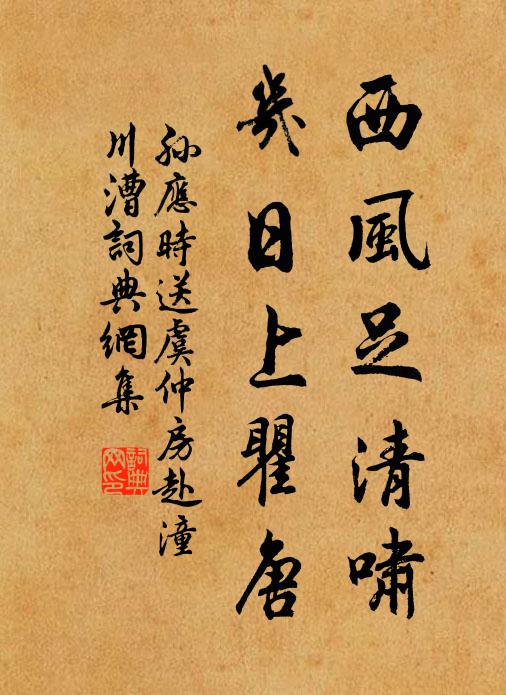 西風足清嘯
幾日上瞿唐
孫應時送虞仲房赴潼
川漕詞典網集
詞典網印